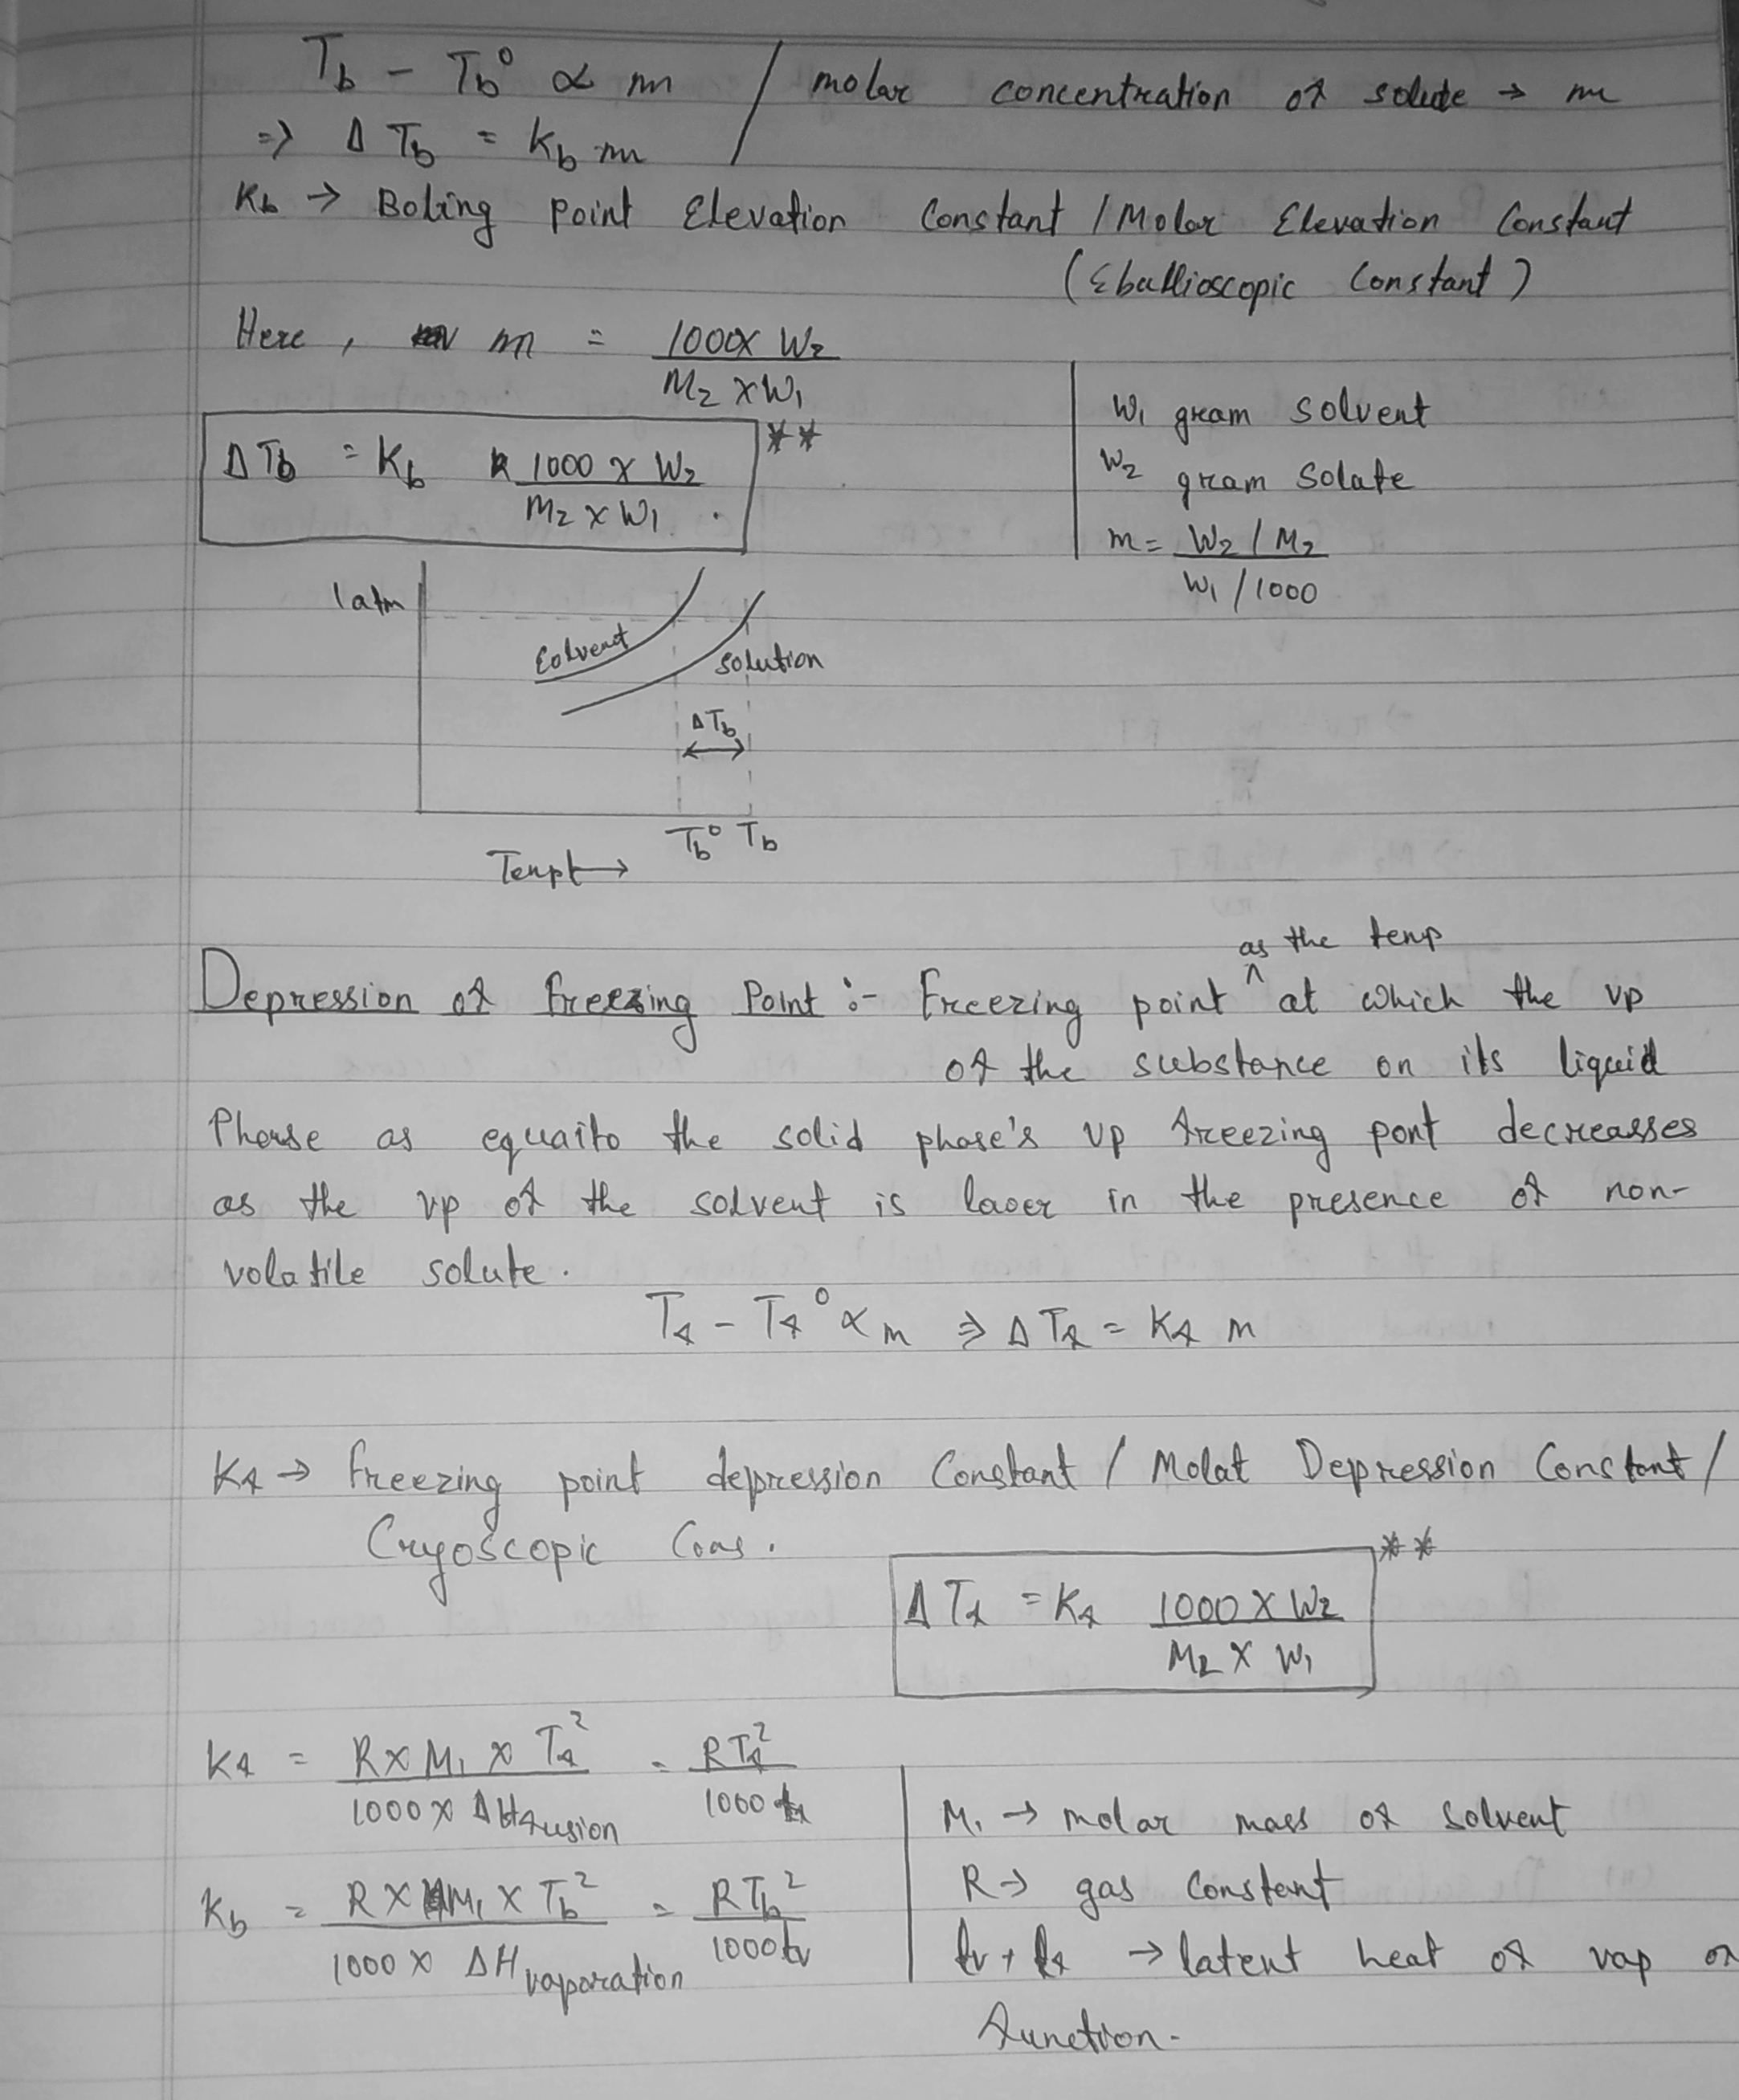 T_b - T_b° ∝ m / molar concentration of solute → m
⇒ Δ T_b = K_b m
K_b → Boling point Elevation Constant / Molar Elevation Constant
(Eballioscopic Constant)
Here, m = 1000 x W₂ / M₂ x W₁
W₁ gram solvent
ΔT_b = K_b 1000 x W₂ / M₂ x W₁ **
W₂ gram Solate
m = W₂ / M₂ / W₁ / 1000
1 atm
Solvent
solution
ΔT_b
T_b° T_b
Tempt →
as the temp
Depression of freezing Point :- Freezing point ^ at which the vp
of the substance on its liquid
Pherse as equaito the solid phase's vp freezing pont decreasses
as the vp of the solvent is lower in the presence of non-
volatile solute.
T_f - T_f° ∝ m ⇒ Δ T_f = K_f m
K_f → freezing point depression Constant / Molat Depression Constant /
Cryoscopic Cons.
Δ T_f = K_f 1000 X W₂ / M₂ X W₁ **
K_f = R x M₁ x T_f² / 1000 x ΔH fusion = RT_f² / 1000 l_f
M₁ → molar mass of solvent
K_b = R X M₁ X T_b² / 1000 x ΔH vaporation = RT_b² / 1000 l_v
R → gas constant
l_v + l_f → latent heat of vap or
function.